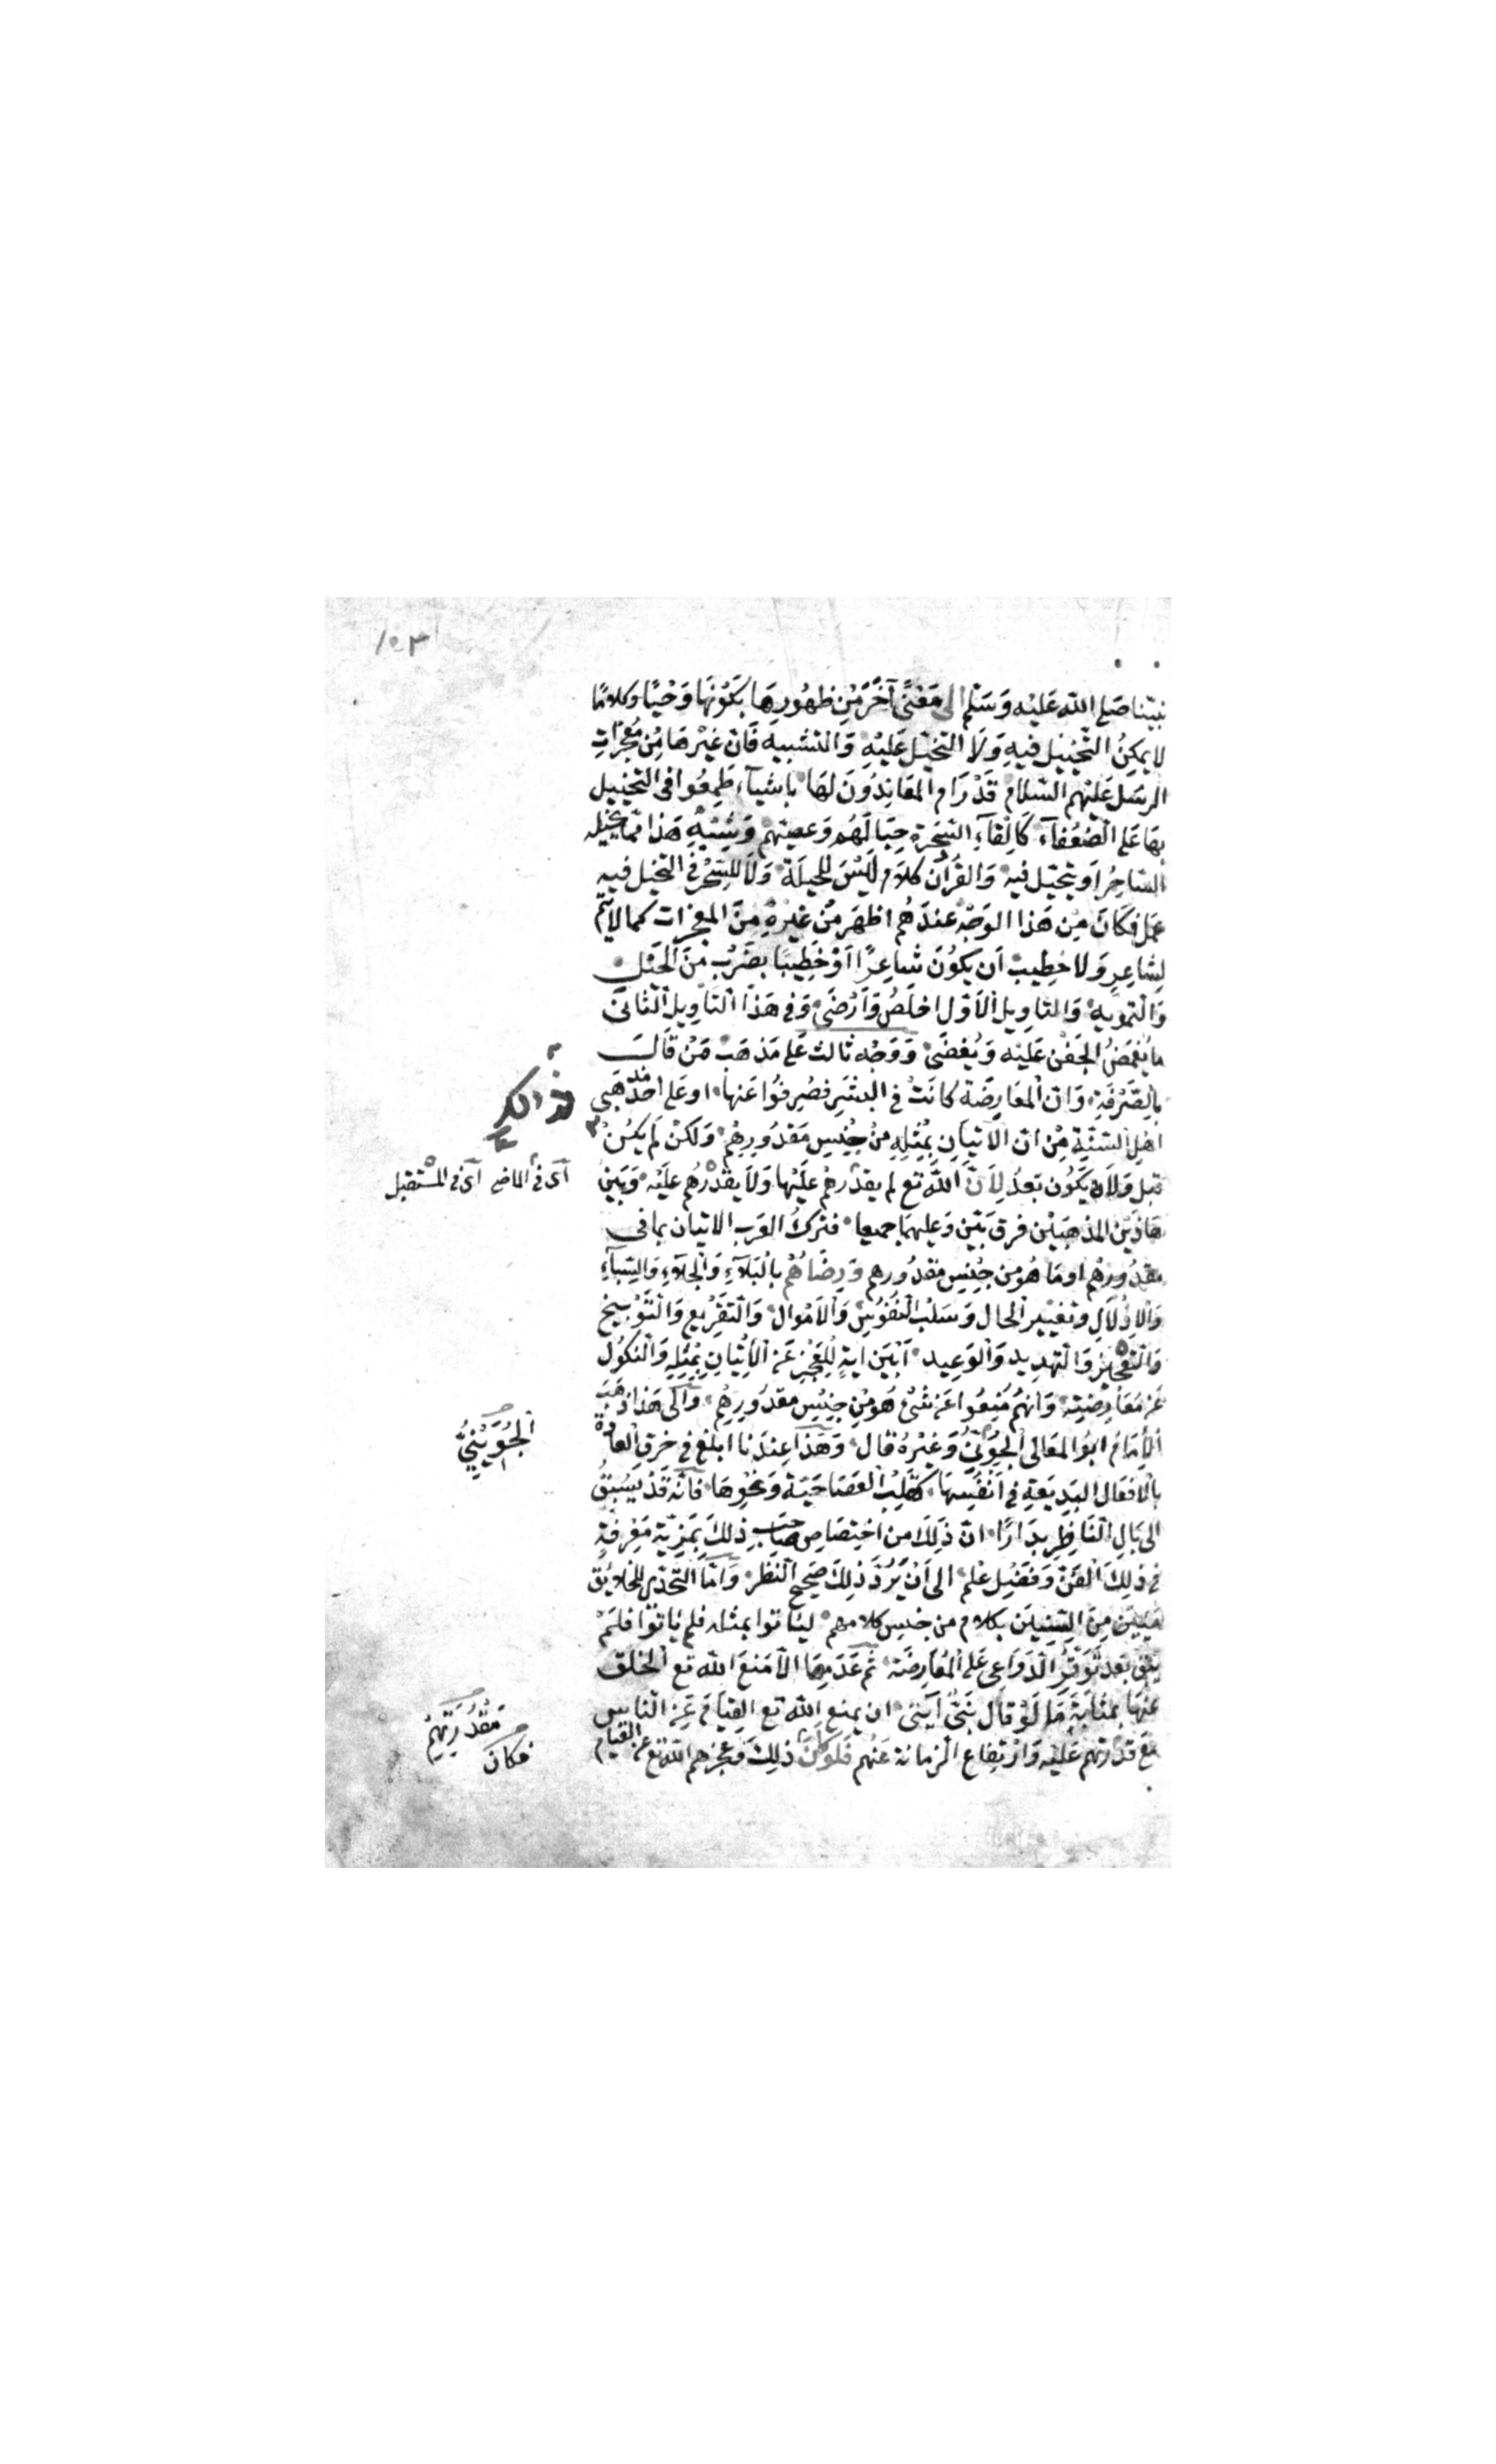 ١٠٣
نبينا صلى الله عليه وسلم الى معنى آخر من ظهورها بكونها وحيا وكلاما
لا يمكن التخييل فيه ولا التحيل عليه والتشبيه فان غيرها من معجزات
الرسل عليهم السلام قد رام المعاندون لها باشياء طمعوا فى التخييل
بها على الضعفاء كالقاء السحرة حبالهم وعصيهم وشبيه هذا مما يخيله
الساحر او يتحيل فيه والقرآن كلام ليس للحيلة ولا للسحر فى التخييل فيه
عمل فكان من هذا الوجه عندهم اظهر من غيره من المعجزات كما لا يتم
لشاعر ولا خطيب ان يكون شاعرا او خطيبا بضرب من الحيل
والتمويه والتاويل الاول اخلص وارضى وفى هذا التاويل الثانى
ما يغمض الجفن عليه ويغضى ووجه ثالث على مذهب من قال
بالصرفة وان المعارضة كانت فى البشر فصرفوا عنها او على احد مذهبى
اهل السنة من ان الاتيان بمثله من جنس مقدورهم ولكن لم يكن
قبل ولا يكون بعد لان الله تع لم يقدرهم عليها ولا يقدرهم عليه وبين
اى فى الماضى اى فى المستقبل
هاذين المذهبين فرق بين وعليهما جميعا فترك العرب الاتيان بما فى
مقدورهم او ما هو من جنس مقدورهم ورضاهم بالبلاء والجلاء والسباء
والاذلال وتغيير الحال وسلب النفوس والاموال والتقريع والتوبيخ
والتعجيز والتهديد والوعيد ابين اية للعجز عن الاتيان بمثله والنكول
عن معارضته وانهم منعوا عن شئ هو من جنس مقدورهم والى هذا ذهب
الامام ابو المعالى الجوينى وغيره قال وهذا عندنا ابلغ فى خرق العادة
الجوينى
بالافعال البديعة فى انفسها كقلب العصا حية ونحوها فانه قد يسبق
الى بال الناظر بدارا ان ذلك من اختصاص صاحب ذلك بمزية معرفة
فى ذلك الفن وفضل علم الى ان يرد ذلك صحيح النظر واما التحدى للخلايق
مئين من السنين بكلام من جنس كلامهم لياتوا بمثله فلم ياتوا فلم
يبق بعد توفر الدواعى على المعارضة ثم عدمها الا منع الله تع الخلق
عنها بمثابة ما لو قال نبى آيتى ان يمنع الله تع القيام عن الناس
مع قدرتهم عليه وارتفاع الزمانة عنهم فلو كان ذلك وعجزهم الله تع عن القيام
مقدرتهم
فكان